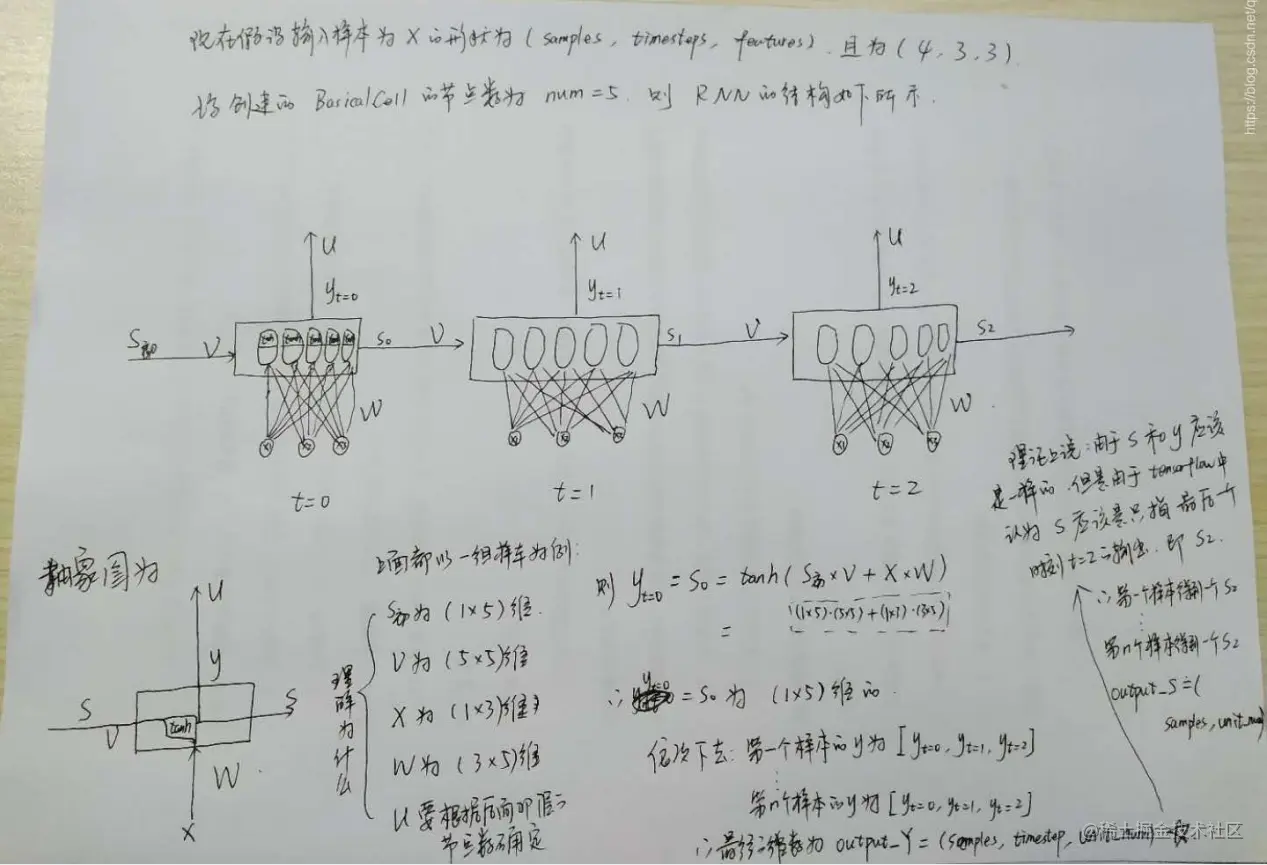 现在假设输入样本为 X 的形状为 ( samples, timesteps, features ). 且为 ( 4, 3, 3 )
创建的 BasicalCell 的节点数为 num = 5. 则 RNN 的结构如下所示.
U
U
U
yt=0
yt=1
yt=2
S初 V
S0 V
S1 V
S2
tanh tanh tanh tanh tanh
W
W
W
X1 X2 X3
X1 X2 X3
X1 X2 X3
t=0
t=1
t=2
理论上说:由于 S 和 y 应该
是一样的.但是由于 tensorflow 中
认为 S 应该是只指最后一个
时刻 t=2 的输出. 即 S2.
∴ 第一个样本得到一个 S2
⋮
第n个样本得到一个 S2
output_S = (
samples, unit_num)
抽象图为
U
y
S
S
V
tanh
W
X
上面都以一组样本为例:
理解为什么
S初 为 (1×5) 维.
V 为 (5×5) 维
X 为 (1×3) 维
W 为 (3×5) 维
U 要根据后面的
节点数确定
则 yt=0 = S0 = tanh ( S初 × V + X × W )
(1×5)·(5×5)+(1×3)·(3×5)
=
∴ yt=0 = S0 为 (1×5) 维的.
依次下去: 第一个样本的 y 为 [ yt=0, yt=1, yt=2 ]
⋮
第n个样本的y为 [ yt=0, yt=1, yt=2 ]
∴ 最终的维数为 output_Y = (samples, timestep, unit_num)
https://blog.csdn.net/q
@稀土掘金技术社区